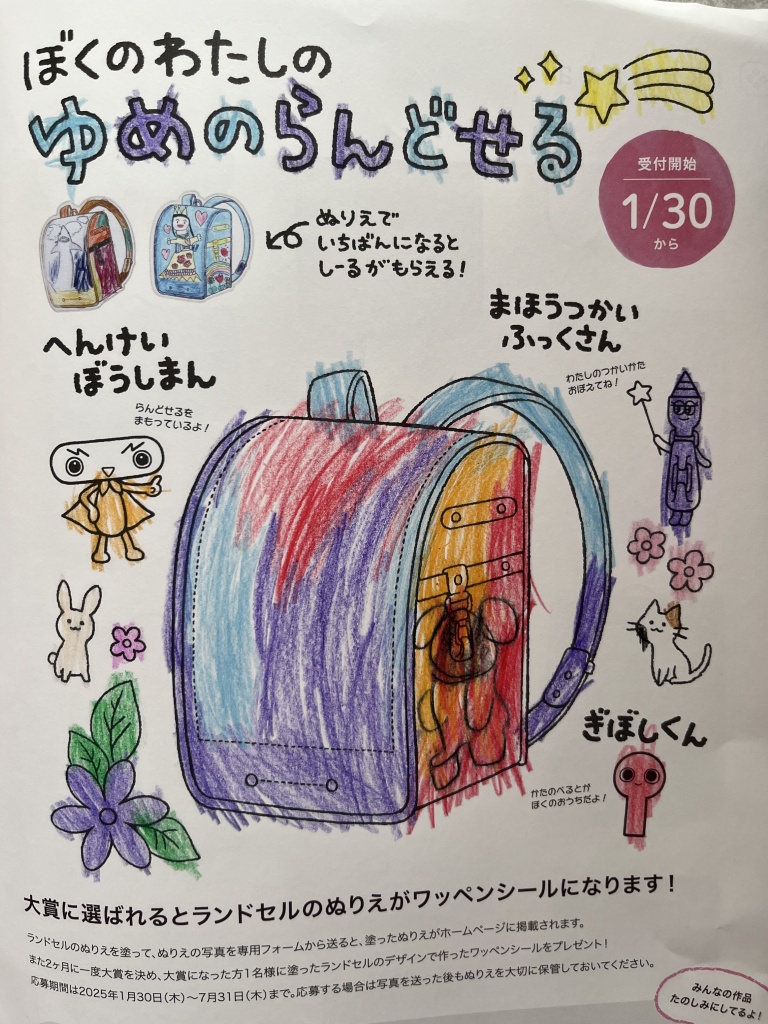 ぼくのわたしの
ゆめのらんどせる
受付開始
1/30
から
ぬりえで
いちばんになると
しーるがもらえる!
へんけい
ぼうしまん
らんどせるを
まもっているよ!
まほうつかい
ふっくさん
わたしのつかいかた
おぼえてね!
ぎぼしくん
かたのべるとが
ぼくのおうちだよ!
大賞に選ばれるとランドセルのぬりえがワッペンシールになります!
ランドセルのぬりえを塗って、ぬりえの写真を専用フォームから送ると、塗ったぬりえがホームページに掲載されます。
また2ヶ月に一度大賞を決め、大賞になった方1名様に塗ったランドセルのデザインで作ったワッペンシールをプレゼント!
応募期間は2025年1月30日(木)〜7月31日(木)まで。応募する場合は写真を送った後もぬりえを大切に保管しておいてください。
みんなの作品
たのしみにしてるよ!